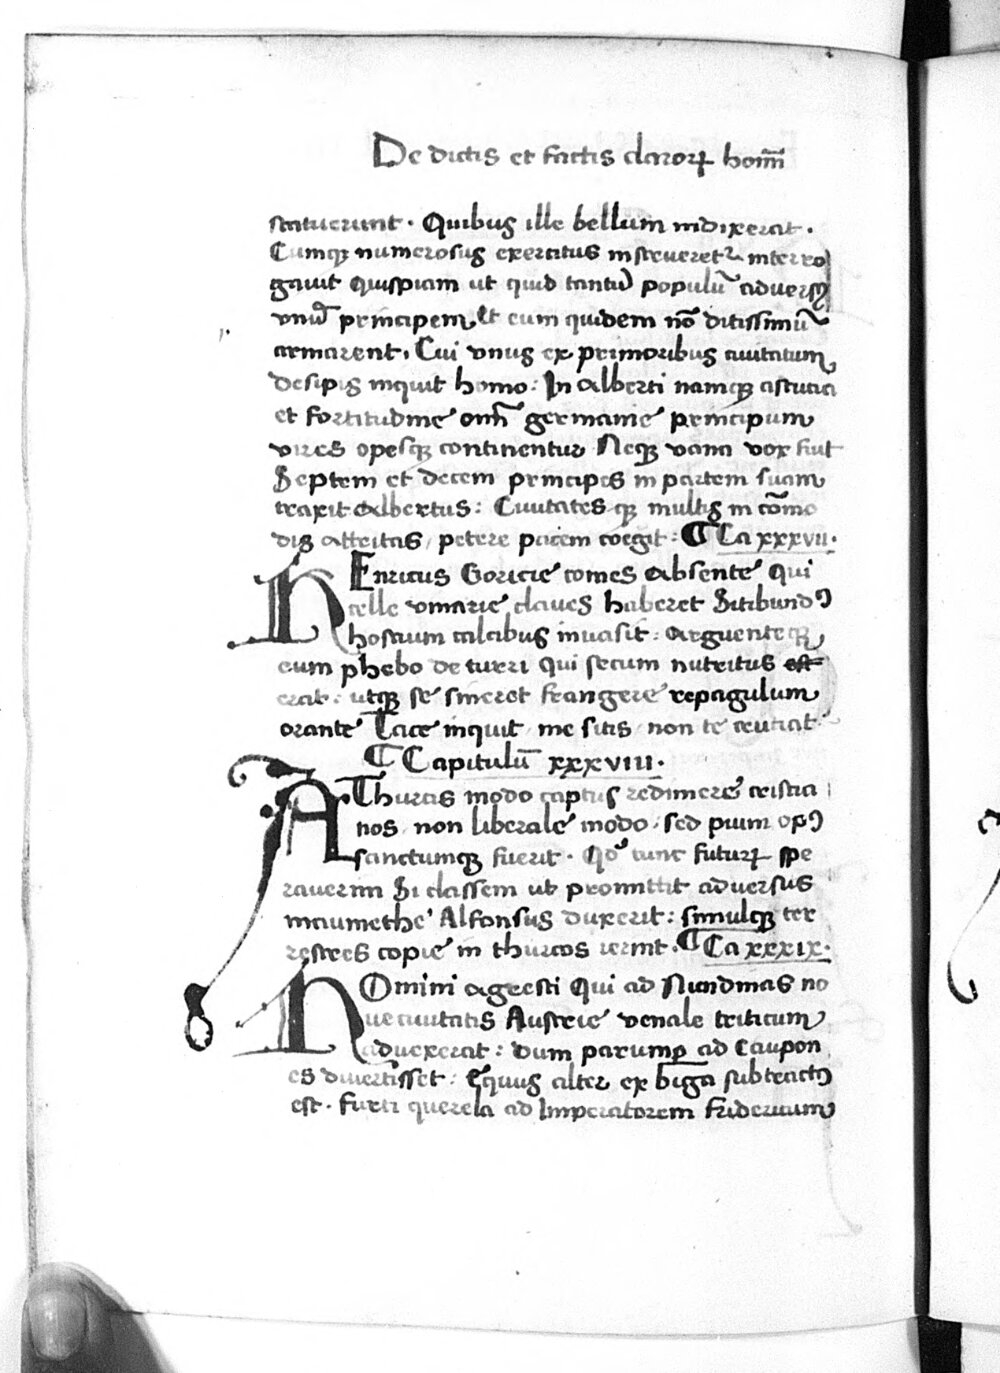 De dictis et factis claroꝝ hom̄
statuerunt · Quibus ille bellum indixerat ·
Cumqꝫ numerosus exercitus instrueret᷑ interro
gauit quispiam ut quid tantū populū aduersꝰ
vnū principem et eum quidem nō ditissimū
armarent, Cui vnus ex primoribus ciuitatum
desipis inquit homo: In Alberti namqꝫ astutia
et fortitudine om̄ germanie principum
vires opesqꝫ continentur Neqꝫ vana vox fuit
Septem et decem principes in partem suam
traxit Albertus: Ciuitatesqꝫ multis in cōmo
dis attritas, petere pacem coegit: ¶ Ca xxxvii·
HEnricus Goricie comes absente qui
celle vinarie claues haberet Sitibundꝰ
hostium calcibus inuasit: arguenteqꝫ
eum phebo de turri qui secum nutritus est
erat: utqꝫ se sineret frangere repagulum
orante Tace inquit, me sitis, non te cruciat
¶ Capitulū xxxviii·
AThurcis modo captus redimere cristia
nos, non liberale modo, sed pium opꝰ
sanctumqꝫ fuerit · Qd̊ tunc futuꝝ spe
rauerim Si classem ut promittit aduersus
maumethe Alfonsus duxerit: simulqꝫ ter
restres copie in thurcos ierint. ¶ Ca xxxix·
HOmini agresti Qui ad Nundinas no
ue ciuitatis Austrie venale triticum
aduexerat: dum parumꝑ ad Caupon
es diuertisset: Equus alter ex biga subtractꝰ
est· furti querela ad Imperatorem fridericum